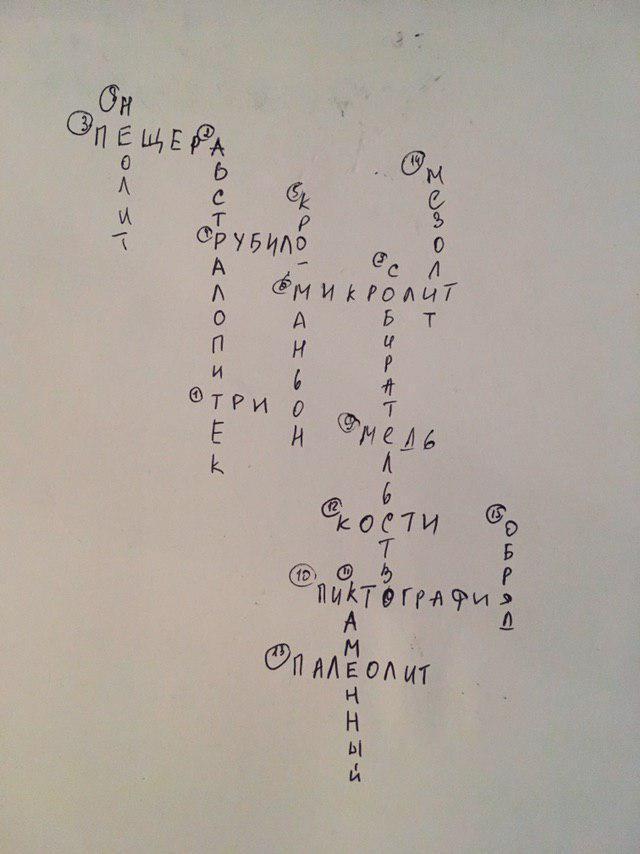 НЕОЛИТ
3 ПЕЩЕРА
2 АВСТРАЛОПИТЕК
14 МЕЗОЛИТ
5 КРО-МАНЬОН
РУБИЛО
СОБИРАТЕЛЬСТВО
6 МИКРОЛИТ
1 ТРИ
9 МЕДЬ
12 КОСТИ
15 ОБРЯД
10 ПИКТОГРАФИЯ
11 КАМЕННЫЙ
13 ПАЛЕОЛИТ